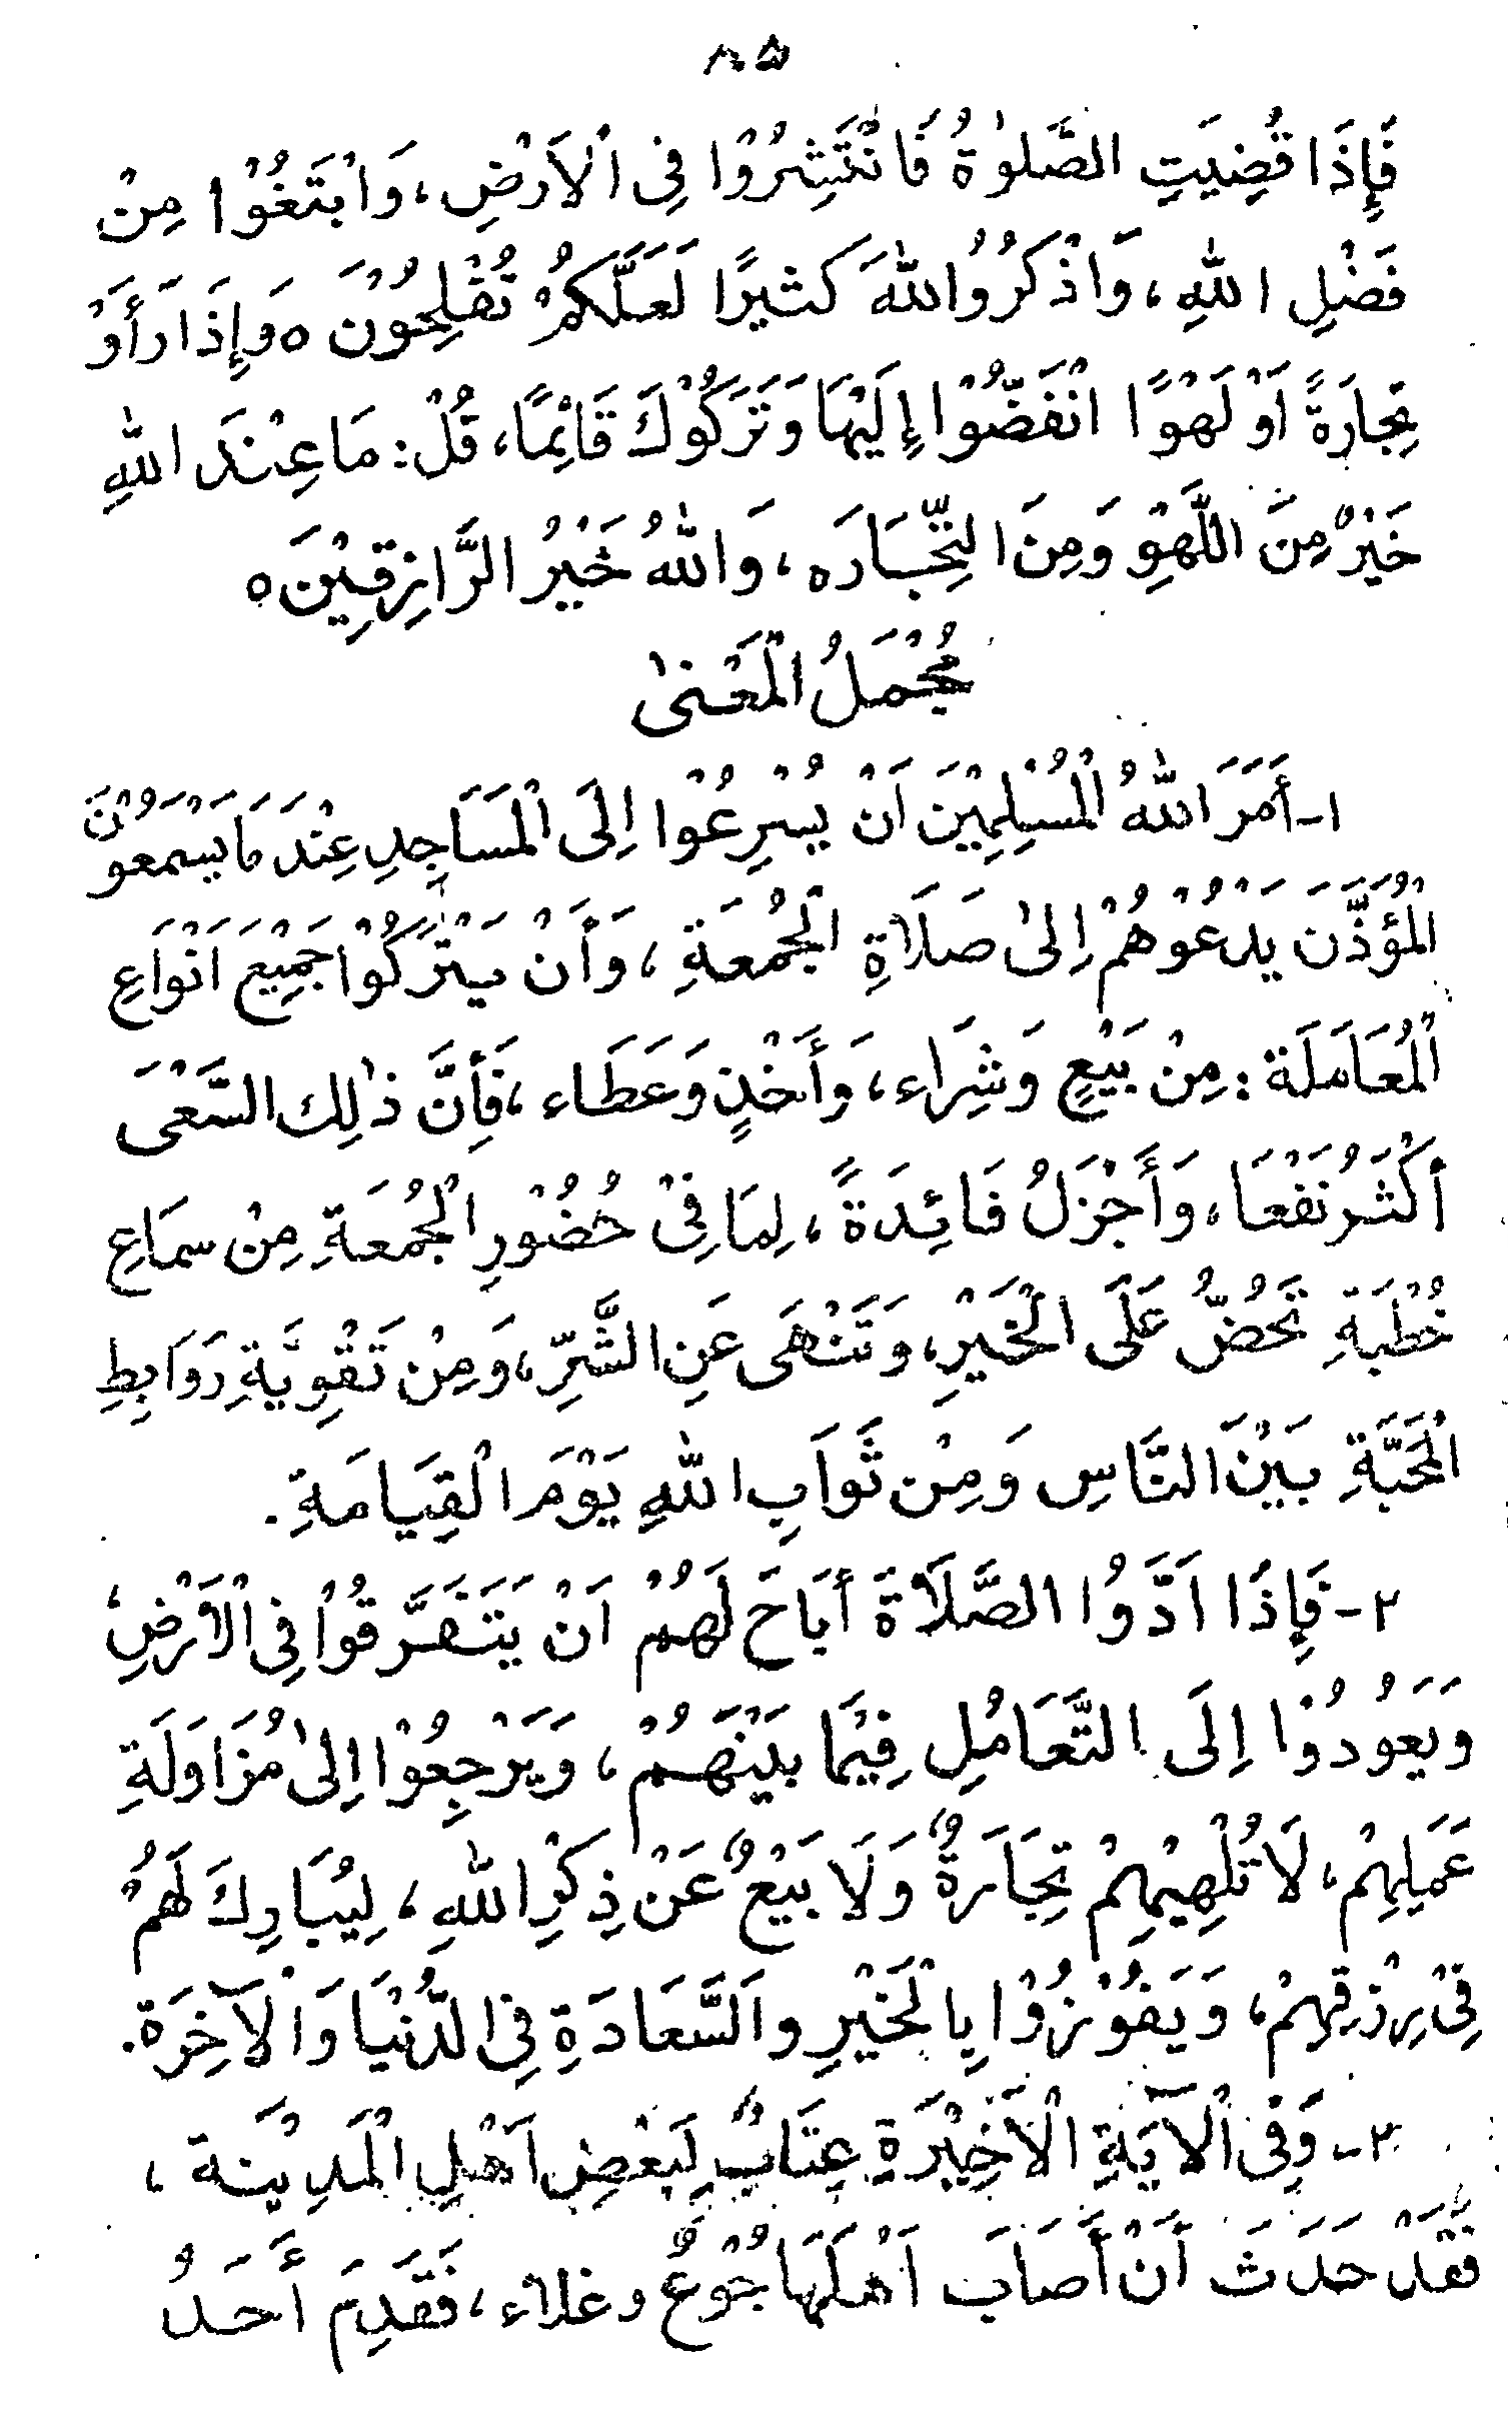 ٨٥
فَإِذَا قُضِيَتِ الصَّلوٰةُ فَانْتَشِرُوْا فِى الْاَرْضِ، وَابْتَغُوْا مِنْ
فَضْلِ اللّٰهِ، وَاذْكُرُوْا اللّٰهَ كَثِيرًا لَعَلَّكُمْ تُفْلِحُوْنَ ٥ وَإِذَا رَأَوْ
تِجَارَةً اَوْ لَهْوًا انْفَضُّوْا إِلَيْهَا وَتَرَكُوْكَ قَائِمًا، قُلْ: مَا عِنْدَ اللّٰهِ
خَيْرٌ مِنَ اللَّهْوِ وَمِنَ التِّجَارَه، وَاللّٰهُ خَيْرُ الرَّازِقِيْنَ ٥
مُجْمَلُ الْمَعْنىٰ
١- أَمَرَ اللّٰهُ الْمُسْلِمِيْنَ اَنْ يُسْرِعُوْا اِلَى الْمَسَاجِدِ عِنْدَ مَا يَسْمَعُوْنَ
الْمُؤَذِّنَ يَدْعُوْهُمْ اِلىٰ صَلَاةِ الْجُمُعَةِ، وَأَنْ يَتْرُكُوْا جَمِيْعَ اَنْوَاعِ
الْمُعَامَلَة: مِنْ بَيْعٍ وَشِرَاء، وَأَخْذٍ وَعَطَاء، فَأِنَّ ذٰلِك السَّعْىَ
أَكْثَرُ نَفْعًا، وَأَجْزَلُ فَائِدَةً، لِمَا فِىْ حُضُوْرِ الْجُمُعَةِ مِنْ سمَاعِ
خُطْبَةِ تَحُضُّ عَلَى الْخَيْرِ، وَتَنْهَى عَنِ الشَّرِّ، وَمِنْ تَقْوِيَةِ رَوَابِطِ
الْمَحَبَّةِ بَيْنَ النَّاسِ وَمِنْ ثَوَابِ اللّٰهِ يَوْمَ الْقِيَامَةِ.
٢- فَإِذَا اَدَّوُا الصَّلَاةَ أَبَاحَ لَهُمْ اَنْ يَتَفَرَّقُوْا فِى الْاَرْضِ،
وَيَعُودُوْا اِلَى التَّعَامُلِ فِيْمَا بَيْنَهُمْ، وَيَرْجِعُوْا اِلىٰ مُزَاوَلَةِ
عَمَلِهِمْ، لَا تُلْهِيْهِمْ تِجَارَةٌ وَلَا بَيْعٌ عَنْ ذِكْرِ اللّٰهِ، لِيُبَارِكَ لَهُمْ
فِىْ رِزْقِهِمْ، وَيَفُوْزُوْا بِالْخَيْرِ وَالسَّعَادَةِ فِى الدُّنْيَا وَالْآخِرَة.
٣- وَفِى الْآيَةِ الْاَخِيْرَةِ عِتَابٌ لِبَعْضِ اَهْلِ الْمَدِيْنَة،
فَقَدْ حَدَثَ أَنْ أَصَابَ اَهْلَهَا جُوْعٌ وغلاء، فَقَدِمَ أَحَدُ